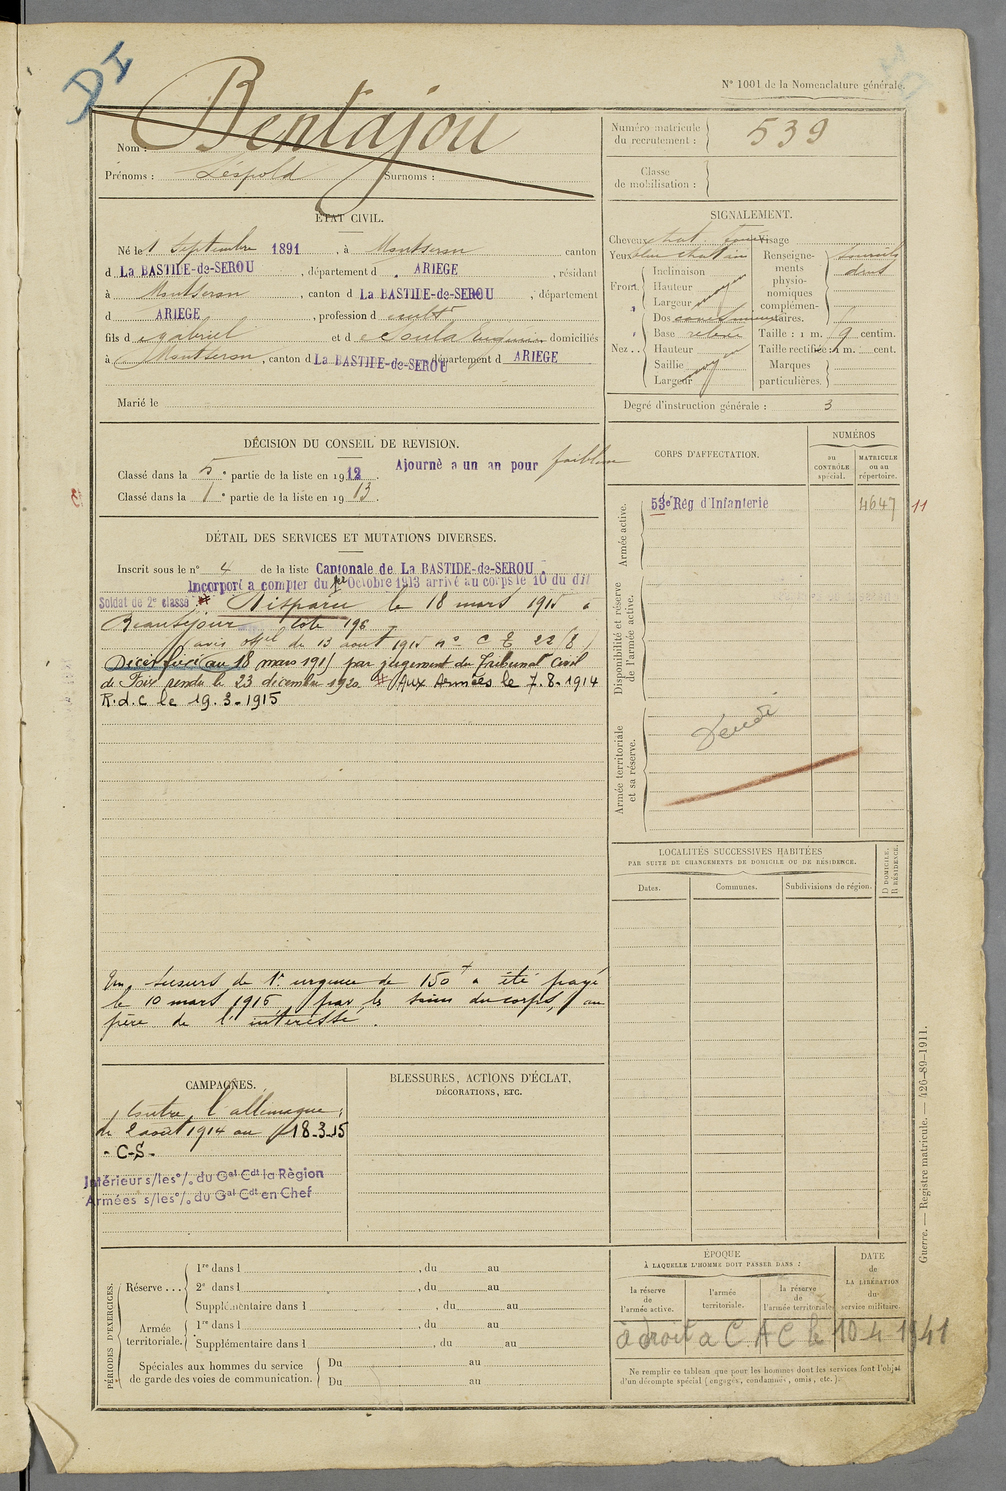 DI
N° 1001 de la Nomenclature générale.
Nom : Bentajou
Prénoms : Léopold Surnoms :
Numéro matricule du recrutement : 539
Classe de mobilisation :
ÉTAT CIVIL.
Né le 1 Septembre 1891, à Montseron canton
d La BASTIDE-de-SEROU, département d ARIEGE, résidant
à Montseron, canton d La BASTIDE-de-SEROU, département
d ARIEGE, profession d cultr
fils d Gabriel et d domiciliés
à Montseron, canton d La BASTIDE-de-SEROU département d ARIEGE
Marié le
SIGNALEMENT.
Cheveux chat Visage
Yeux bleu chatain
Front Inclinaison
Hauteur
Largeur moy
Nez Dos
Base relevé
Hauteur
Saillie
Largeur moy
Renseignements physionomiques complémentaires. sourcils drus
Taille : 1 m. centim.
Taille rectifiée : 1 m. cent.
Marques particulières.
Degré d'instruction générale : 3
DÉCISION DU CONSEIL DE REVISION.
Classé dans la 5e partie de la liste en 1912. Ajourné a un an pour faiblesse
Classé dans la 1e partie de la liste en 1913.
CORPS D'AFFECTATION.
NUMÉROS
au CONTRÔLE spécial.
MATRICULE ou au répertoire.
Armée active.
53e Rég d'Infanterie 4647 11
Disponibilité et réserve de l'armée active.
Armée territoriale et sa réserve.
DÉTAIL DES SERVICES ET MUTATIONS DIVERSES.
Inscrit sous le n° 4 de la liste Cantonale de La BASTIDE-de-SEROU.
Incorporé a compter du 1er Octobre 1913 arrivé au corps le 10 du dit
Soldat de 2e classe Disparu le 18 mars 1915 à
Beauséjour cote 196
avis offel du 13 aout 1915 n° C E 22/8
Décès fixé au 18 mars 1915 par jugement du Tribunal Civil
de Foix rendu le 23 décembre 1920 Aux Armées le 7.8.1914
R.d.c le 19.3.1915
Un secours de 1e urgence de 150f a été payé
le 10 mars 1915 par les soins du corps, au
père de l'intéressé.
LOCALITÉS SUCCESSIVES HABITÉES
PAR SUITE DE CHANGEMENTS DE DOMICILE OU DE RÉSIDENCE.
Dates. Communes. Subdivisions de région. D DOMICILE. R RÉSIDENCE.
CAMPAGNES.
Contre l'allemagne :
du 2 aout 1914 au 18-3-15
- C-S -
Intérieur s/les o/. du Gal Cdt la Région
Armées s/les o/. du Gal Cdt en Chef
BLESSURES, ACTIONS D'ÉCLAT,
DÉCORATIONS, ETC.
PÉRIODES D'EXERCICES.
Réserve ... 1re dans l , du au
2e dans l , du au
Supplémentaire dans l , du au
Armée territoriale. 1re dans l , du au
Supplémentaire dans l , du au
Spéciales aux hommes du service de garde des voies de communication. Du au
Du au
ÉPOQUE
À LAQUELLE L'HOMME DOIT PASSER DANS :
la réserve de l'armée active.
l'armée territoriale.
la réserve de l'armée territoriale.
DATE de LA LIBÉRATION du service militaire.
à droit a C A C le 10 4 1941
Ne remplir ce tableau que pour les hommes dont les services font l'objet
d'un décompte spécial (engagés, condamnés, omis, etc.).
Guerre. — Registre matricule. — 426-89-1911.